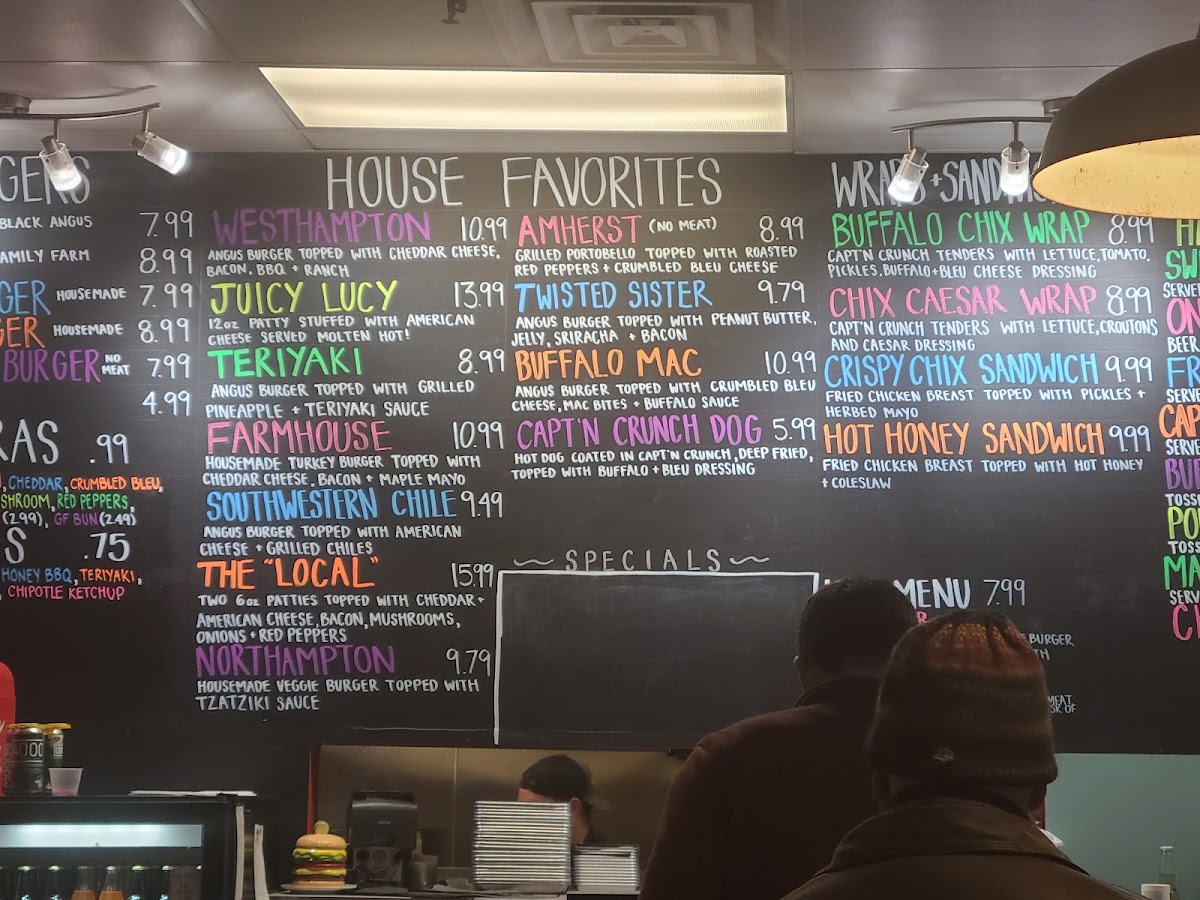 BLACK ANGUS 7.99
FAMILY FARM 8.99
HOUSEMADE 7.99
HOUSEMADE 8.99
BURGER NO MEAT 7.99
4.99
.99
CHEDDAR, CRUMBLED BLEU,
RED PEPPERS,
(2.99), GF BUN (2.49)
.75
HONEY BBQ, TERIYAKI,
CHIPOTLE KETCHUP
HOUSE FAVORITES
WESTHAMPTON 10.99
ANGUS BURGER TOPPED WITH CHEDDAR CHEESE,
BACON, BBQ + RANCH
JUICY LUCY 13.99
12oz PATTY STUFFED WITH AMERICAN
CHEESE SERVED MOLTEN HOT!
TERIYAKI 8.99
ANGUS BURGER TOPPED WITH GRILLED
PINEAPPLE + TERIYAKI SAUCE
FARMHOUSE 10.99
HOUSEMADE TURKEY BURGER TOPPED WITH
CHEDDAR CHEESE, BACON + MAPLE MAYO
SOUTHWESTERN CHILE 9.49
ANGUS BURGER TOPPED WITH AMERICAN
CHEESE + GRILLED CHILES
THE "LOCAL" 15.99
TWO 6oz PATTIES TOPPED WITH CHEDDAR +
AMERICAN CHEESE, BACON, MUSHROOMS,
ONIONS + RED PEPPERS
NORTHAMPTON 9.79
HOUSEMADE VEGGIE BURGER TOPPED WITH
TZATZIKI SAUCE
AMHERST (NO MEAT) 8.99
GRILLED PORTOBELLO TOPPED WITH ROASTED
RED PEPPERS + CRUMBLED BLEU CHEESE
TWISTED SISTER 9.79
ANGUS BURGER TOPPED WITH PEANUT BUTTER,
JELLY, SRIRACHA + BACON
BUFFALO MAC 10.99
ANGUS BURGER TOPPED WITH CRUMBLED BLEU
CHEESE, MAC BITES + BUFFALO SAUCE
CAPT'N CRUNCH DOG 5.99
HOT DOG COATED IN CAPT'N CRUNCH, DEEP FRIED,
TOPPED WITH BUFFALO + BLEU DRESSING
SPECIALS
BUFFALO CHIX WRAP 8.99
CAPT'N CRUNCH TENDERS WITH LETTUCE, TOMATO,
PICKLES, BUFFALO + BLEU CHEESE DRESSING
CHIX CAESAR WRAP 8.99
CAPT'N CRUNCH TENDERS WITH LETTUCE, CROUTONS
AND CAESAR DRESSING
CRISPY CHIX SANDWICH 9.99
FRIED CHICKEN BREAST TOPPED WITH PICKLES +
HERBED MAYO
HOT HONEY SANDWICH 9.99
FRIED CHICKEN BREAST TOPPED WITH HOT HONEY
+ COLESLAW
MENU 7.99
BURGER
MEAT